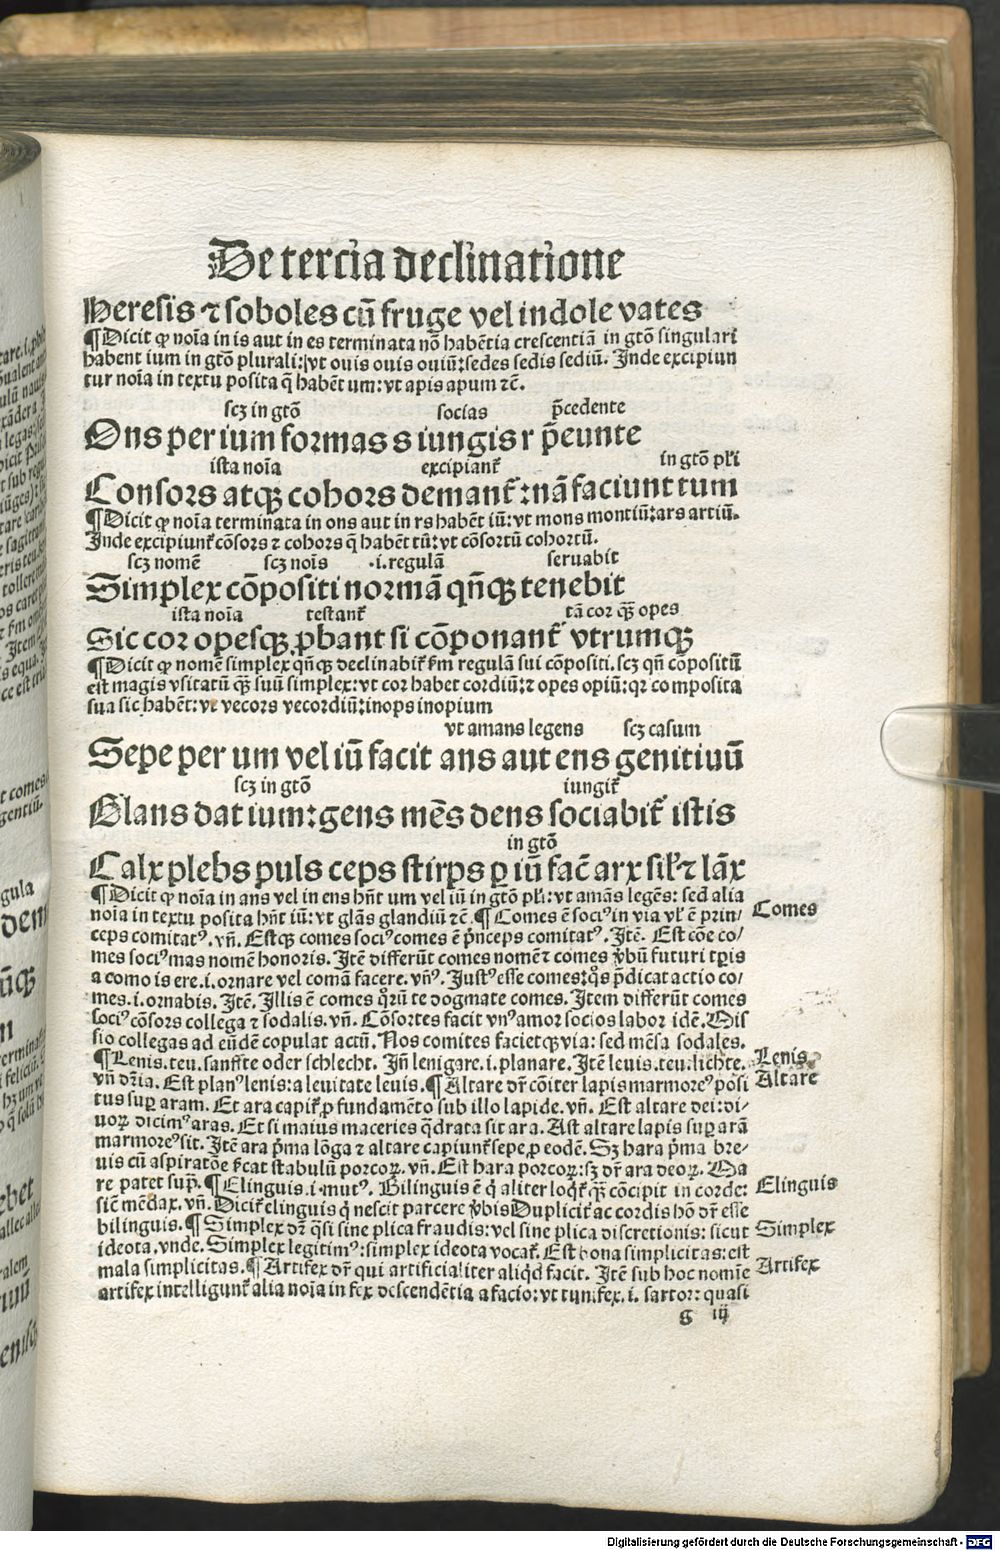 De tercia declinatione
Heresis ⁊ soboles cū fruge vel indole vates
¶Dicit ꝙ noīa in is aut in es terminata nō habētia crescentiā in gtō singulari
habent ium in gtō plurali: vt ouis ouis ouiū: sedes sedis sediū. Inde excipiun
tur noīa in textu posita q̄ habēt um: vt apis apum ⁊c̄.
scꝫ in gtō socias p̄cedente
Ons per ium formas s iungis r p̄eunte
ista noīa excipiant᷑ in gtō pl̄i
Consors atqꝫ cohors demant᷑: nā faciunt tum
¶Dicit ꝙ noīa terminata in ons aut in rs habēt iū: vt mons montiū: ars artiū.
Inde excipiunt᷑ cōsors ⁊ cohors q̄ habēt tū: vt cōsortū cohortū.
scꝫ nomē scꝫ noīs .i. regulā seruabit
Simplex cōpositi normā qn̄qꝫ tenebit
ista noīa testant᷑ tā cor qꝫ̄ opes
Sic cor opesqꝫ ꝓbant si cōponant᷑ vtrumqꝫ
¶Dicit ꝙ nomē simplex qn̄qꝫ declinabit᷑ ẜm regulā sui cōpositi. scꝫ qn̄ cōpositū
est magis vsitatū qꝫ̄ suū simplex: vt cor habet cordiū: ⁊ opes opiū: qꝛ composita
sua sic habēt: vt vecors vecordiū: inops inopium
vt amans legens scꝫ casum
Sepe per um vel iū facit ans aut ens genitiuū
scꝫ in gtō iungit᷑
Glans dat ium: gens mēs dens sociabit᷑ istis
in gtō
Calx plebs puls ceps stirps ꝑ iū fac̄ arx sil̄r ⁊ lāx
¶Dicit ꝙ noīa in ans vel in ens hn̄t um vel iū in gtō pl̄i: vt amās legēs: sed alia
noīa in textu posita hn̄t iū: vt glās glandiū ⁊c̄. ¶Comes ē sociꝰ in via vl̓ ē prin/
ceps comitatꝰ. vn̄. Estqꝫ comes sociꝰ comes ē p̄nceps comitatꝰ. Itē. Est cōe co/
mes sociꝰ mas nomē honoris. Itē differūt comes nomē ⁊ comes v̓bū futuri tꝑis
a como is ere .i. ornare vel comā facere. vnꝰ. Iustꝰ esse comes: qͦs p̄dicat actio co/
mes .i. ornabis. Itē. Illis ē comes qͦrū te dogmate comes. Item differūt comes
sociꝰ cōsors collega ⁊ sodalis. vn̄. Cōsortes facit vnꝰ amor socios labor idē. Mis
sio collegas ad eūdē copulat actū. Nos comites facietqꝫ via: sed mēsa sodales.
¶Lenis .teu. sanffte oder schlecht. Jn̄ lenigare .i. planare. Itē leuis .teu. lichte.
vn̄ dr̄ia. Est planꝰ lenis: a leuitate leuis. ¶Altare dr̄ cōiter lapis marmoreꝰ posi
tus suꝑ aram. Et ara capit᷑ ꝓ fundamēto sub illo lapide. vn̄. Est altare dei: di/
uoꝝ dicimꝰ aras. Et si maius maceries qͣdrata sit ara. Ast altare lapis suꝑ arā
marmoreꝰ sit. Itē ara p̄ma lōga ⁊ altare capiunt᷑ sepe ꝓ eodē. Sꝫ hara p̄ma bre/
uis cū aspiratōe ẜcat stabulū porcoꝝ. vn̄. Est hara porcoꝝ: sꝫ dr̄ ara deoꝝ. Ma
re patet supͣ. ¶Elinguis .i. mutꝰ. Bilinguis ē q̇ aliter loqͥt᷑ qꝫ̄ cōcipit in corde:
sic̄ mēdax. vn̄. Dicit᷑ elinguis q̇ nescit parcere v̓bis Duplicit᷑ ac cordis hō dr̄ esse
bilinguis. ¶Simplex dr̄ qͣsi sine plica fraudis: vel sine plica discretionis: sicut
ideota. vnde. Simplex legitimꝰ: simplex ideota vocat᷑. Est bona simplicitas: est
mala simplicitas. ¶Artifex dr̄ qui artificialiter aliqͥd facit. Itē sub hoc nomīe
artifex intelligunt᷑ alia noīa in fex descendētia a facio: vt tunifex .i. sartor: quasi
g iij
Comes
Lenis
Altare
Elinguis
Simplex
Artifex
Digitalisierung gefördert durch die Deutsche Forschungsgemeinschaft - DFG